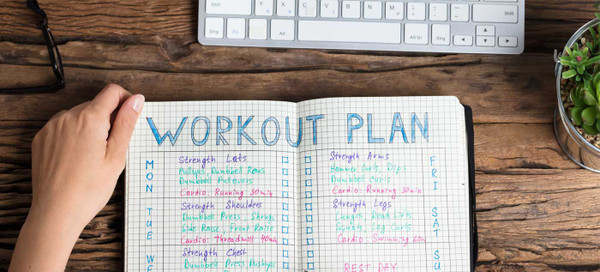 WORKOUT PLAN
MON
Strength Lats
Pullups, Dumbbell Rows
Dumbbell Pullovers
Cardio: Running 30min
TUE
Strength Shoulders
Dumbbell Press, Shrugs
Side Raise, Front Raise
Cardio: Treadmill 40min
WE
Strength Chest
Dumbbell Press, Pushups
FRI
Strength Arms
Hammer Curls, Dips
Dumbbell Curls
Cardio: Running 30min
SAT
Strength Legs
Lunges, Dead Lifts
Squats, Leg Curls
Cardio: Swimming
SU
REST DAY